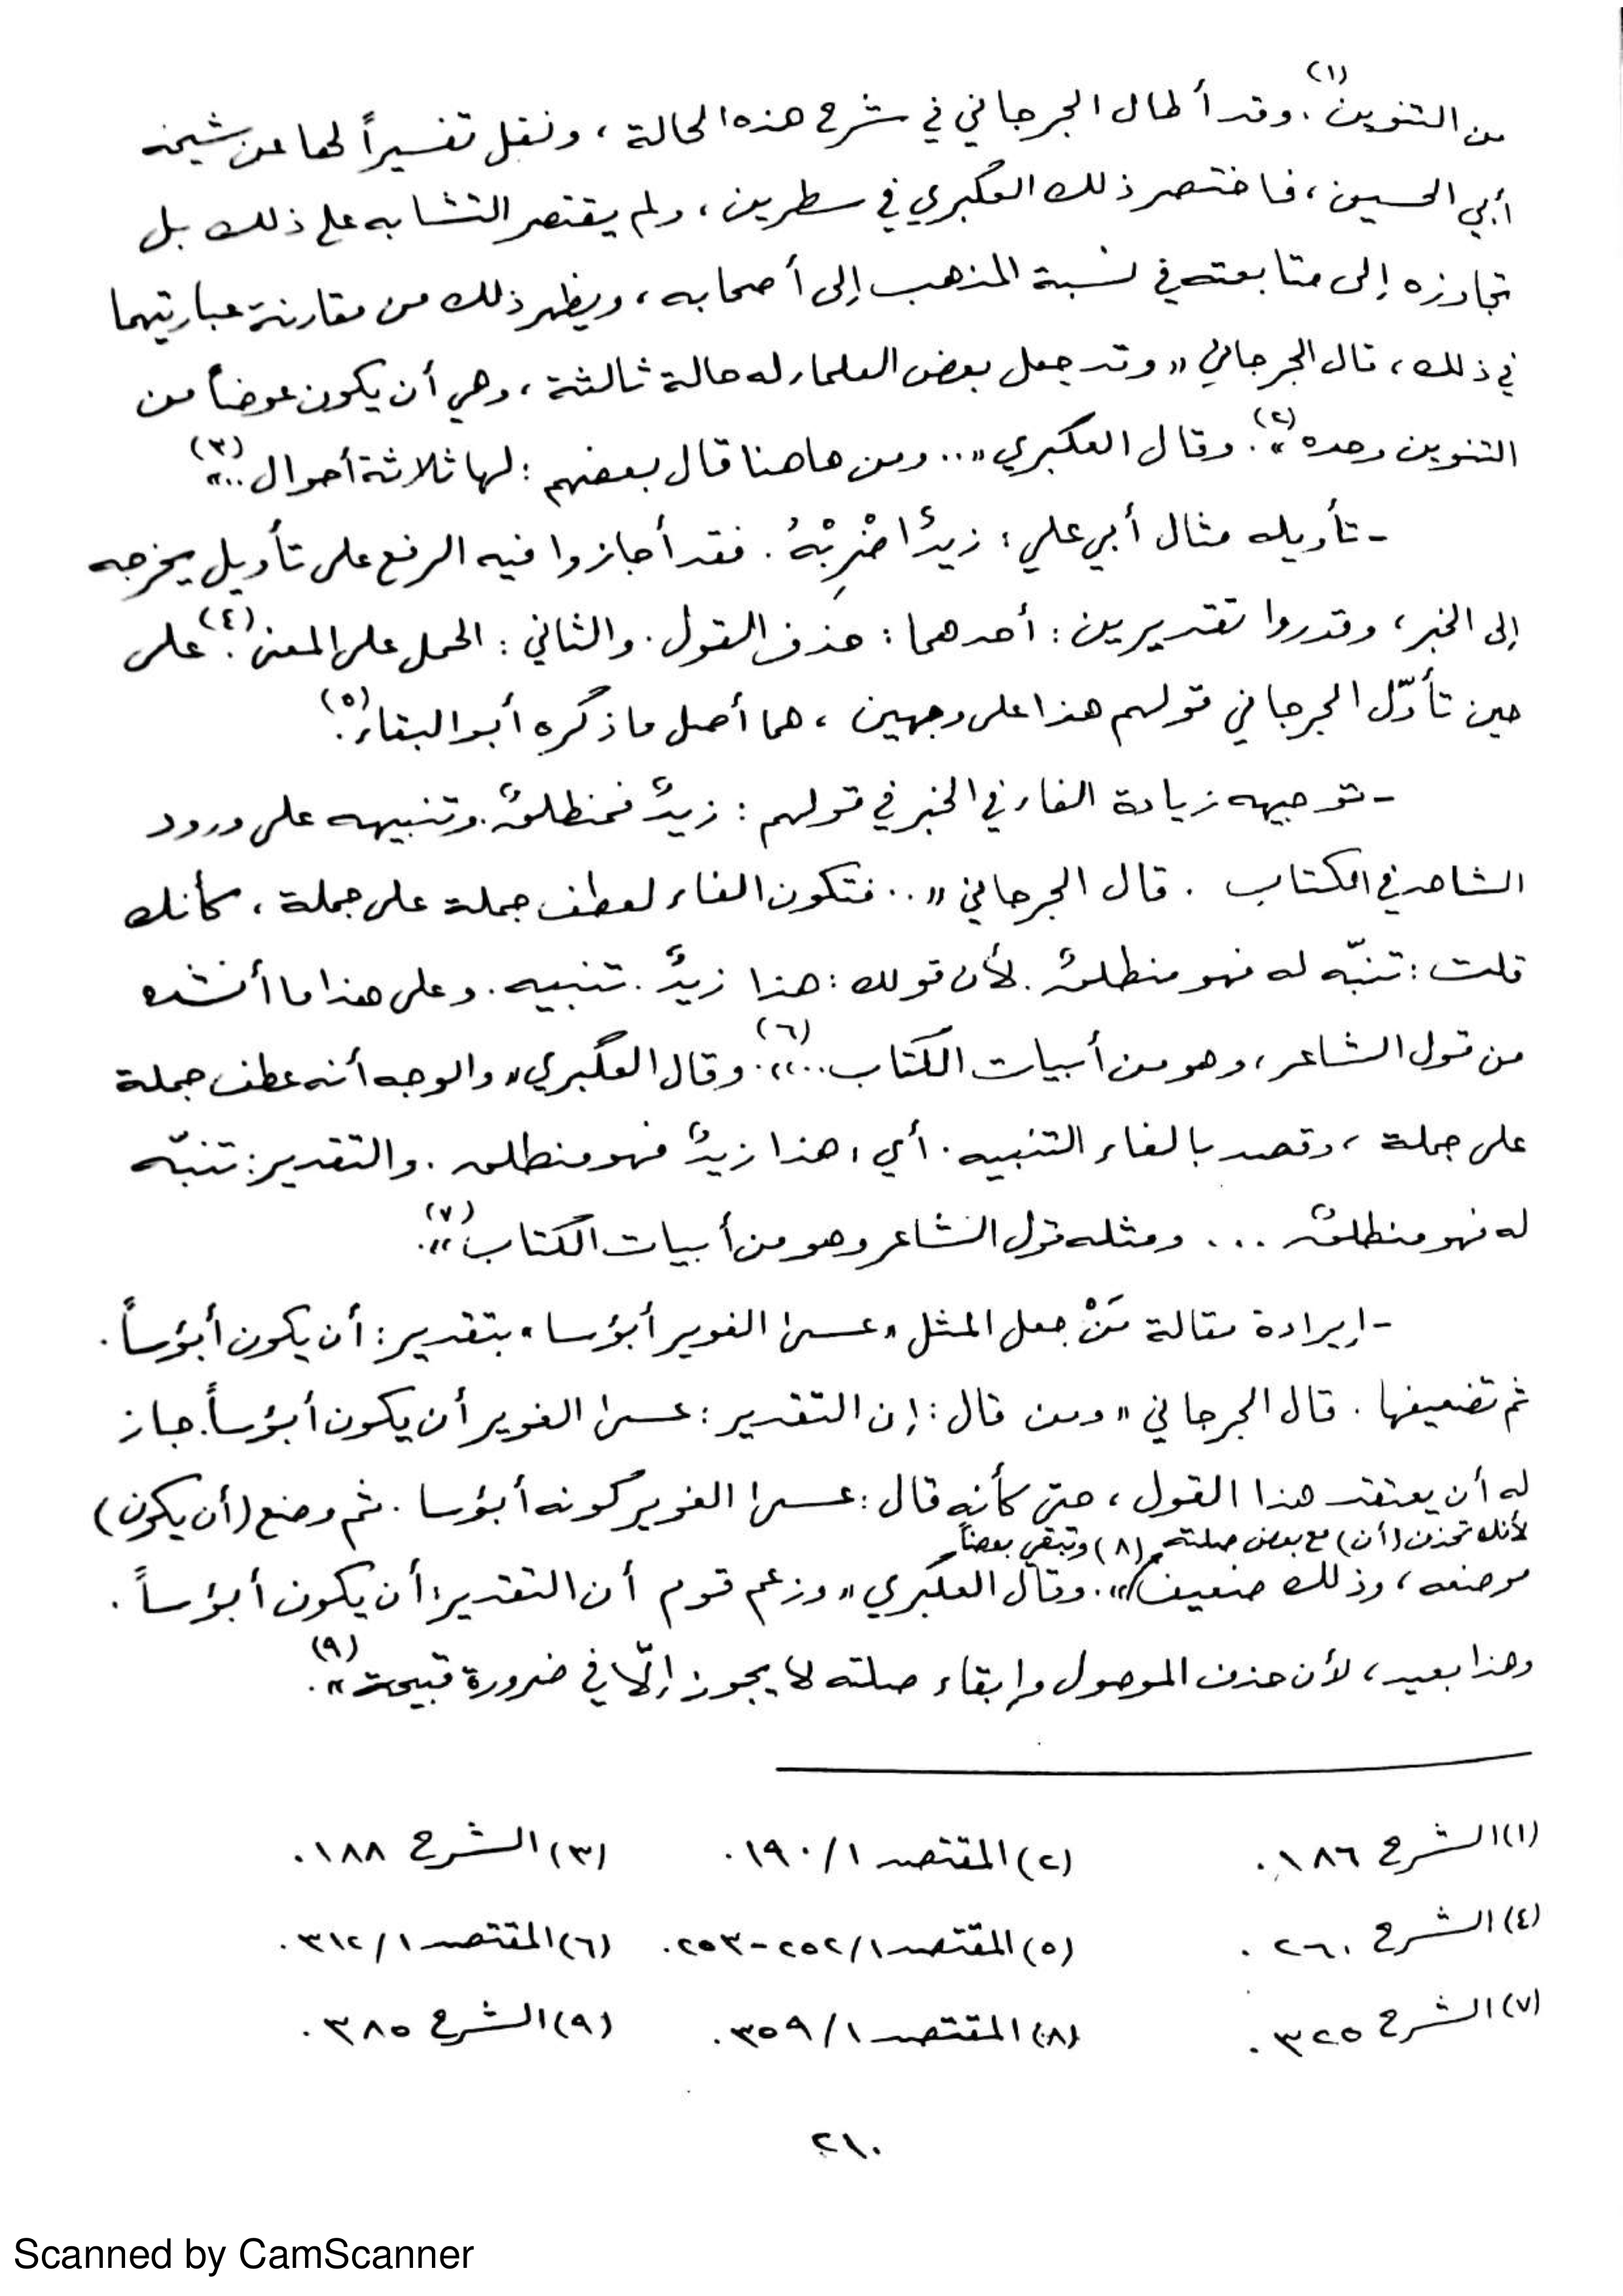 من التنوين(١). وقد أطال الجرجاني في شرح هذه الحالة، ونقل تفسيراً لها عن شيخه
أبي الحسين، فاختصر ذلك العكبري في سطرين، ولم يقتصر التشابه على ذلك بل
تجاوزه إلى متابعته في نسبة المذهب إلى أصحابه، ويظهر ذلك من مقارنة عبارتيهما
في ذلك، قال الجرجاني «وقد جعل بعض العلماء له حالة ثالثة، وهي أن يكون عوضاً من
التنوين وحده»(٢). وقال العكبري «.. ومن هاهنا قال بعضهم: لها ثلاثة أحوال..»(٣)
- تأويله مثال أبي علي: زيدٌ اضْرِبْهُ. فقد أجازوا فيه الرفع على تأويل يخرجه
إلى الخبر، وقدروا تقديرين: أحدهما: حذف القول. والثاني: الحمل على المعنى(٤). على
حين تأوّل الجرجاني قولهم هذا على وجهين، هما أصل ما ذكره أبو البقاء(٥).
- توجيهه زيادة الفاء في الخبر في قولهم: زيدٌ فمنطلقٌ. وتنبيهه على ورود
الشاهد في الكتاب. قال الجرجاني «.. فتكون الفاء لعطف جملة على جملة، كأنك
قلت: تنبّه له فهو منطلقٌ. لأن قولك: هذا زيدٌ. تنبيه. وعلى هذا ما أنشده
من قول الشاعر، وهو من أبيات الكتاب..»(٦). وقال العكبري «والوجه أنه عطف جملة
على جملة، وقصد بالفاء التنبيه. أي: هذا زيدٌ فهو منطلق. والتقدير: تنبّه
له فهو منطلقٌ ... ومثله قول الشاعر وهو من أبيات الكتاب»(٧).
- إيراده مقالة مَنْ جعل المثل «عسى الغوير أبؤسا» بتقدير: أن يكون أبؤساً.
ثم تضعيفها. قال الجرجاني «ومن قال: إن التقدير: عسى الغوير أن يكون أبؤساً. جاز
له أن يعتقد هذا القول، حتى كأنه قال: عسى الغوير كونه أبؤسا. ثم وضع (أن يكون)
لأنك تحذف (أن) مع بعض صلته (٨) وتبقي بعضاً
موضعه، وذلك ضعيف». وقال العكبري «وزعم قوم أن التقدير: أن يكون أبؤساً.
وهذا بعيد، لأن حذف الموصول وإبقاء صلته لا يجوز إلّا في ضرورة قبيحة»(٩).
(١) الشرح ١٨٦. (٢) المقتصد ١/ ١٩٠. (٣) الشرح ١٨٨.
(٤) الشرح ٢٦٠. (٥) المقتصد ١/ ٢٥٢-٢٥٣. (٦) المقتصد ١/ ٣١٢.
(٧) الشرح ٣٢٥. (٨) المقتصد ١/ ٣٥٩. (٩) الشرح ٣٨٥.
٢١٠
Scanned by CamScanner